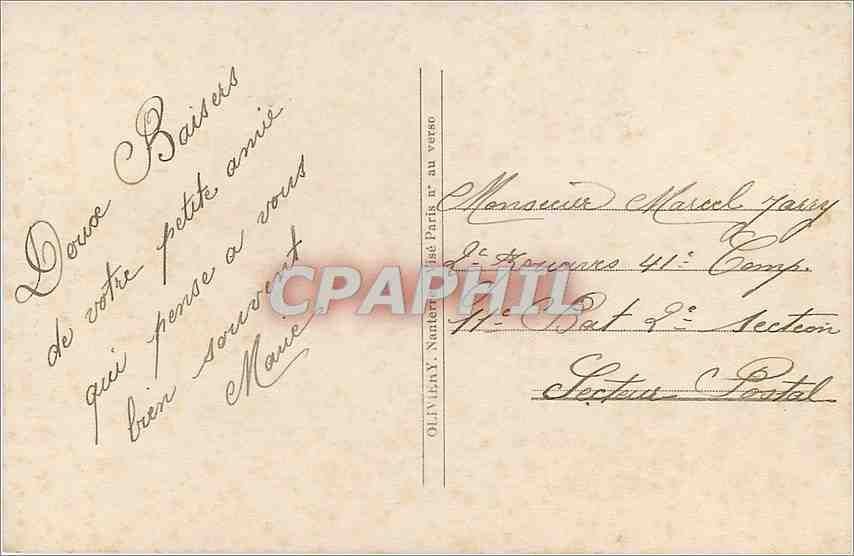 Doux Baisers
de votre petite amie
qui pense a vous
bien souvent
OLIVIERY. Nanterre isé Paris n° au verso
CPAPHIL
Monsieur Marcel Jarry
2e Zouaves 41e Comp.
11e Bat 2e Section
Secteur Postal